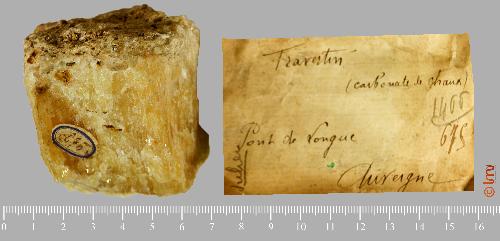 Travertin
(carbonate de chaux)
1400
675
Pont de Longue
Auvergne
0 1 2 3 4 5 6 7 8 9 10 11 12 13 14 15 16
© lmv